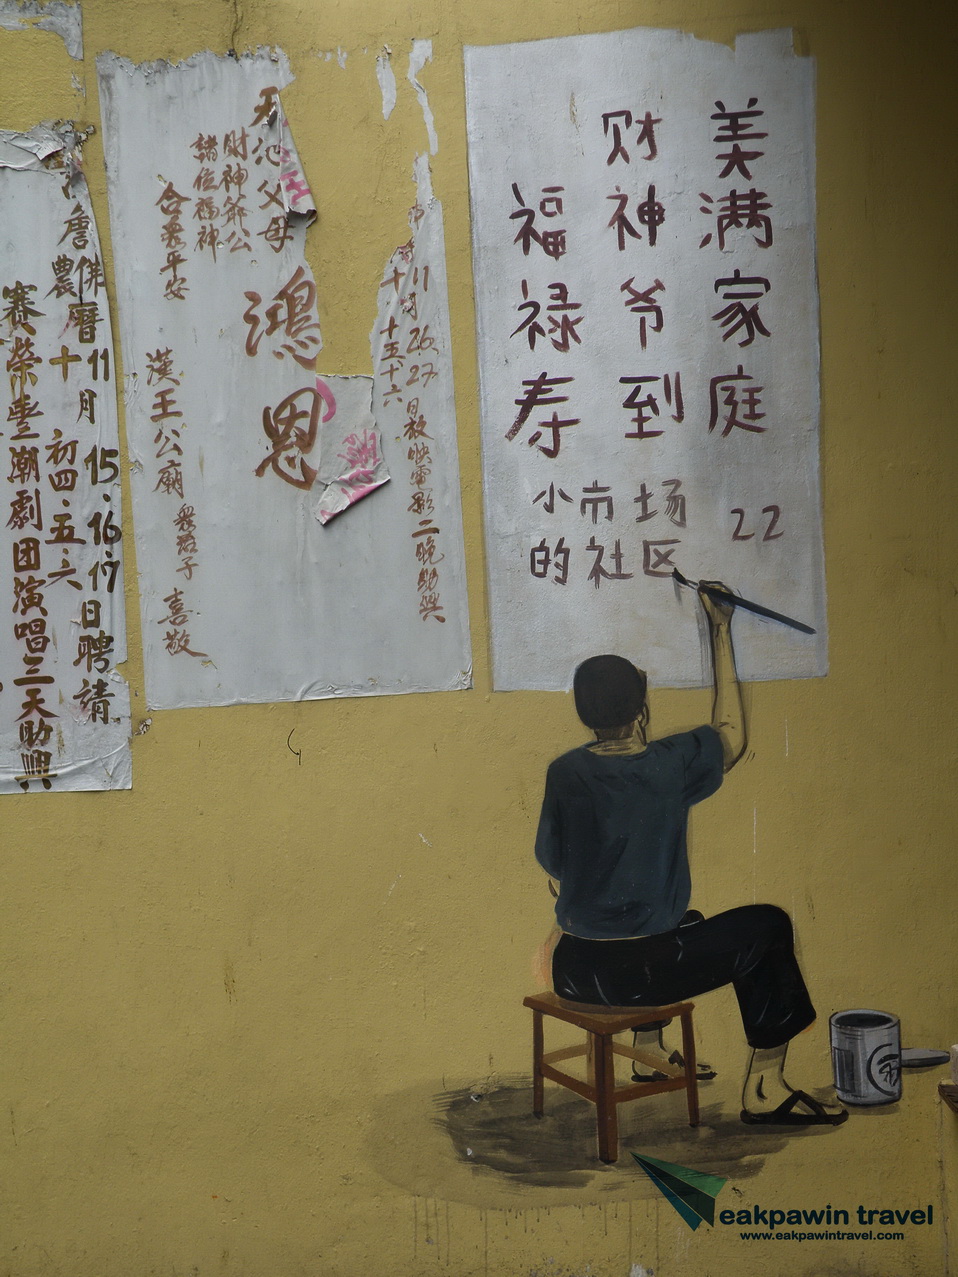 美满家庭 22
财神爷到
福禄寿
小市场
的社区
11月26 27日放映電影二晚助興
十十五十六
天池父母
鴻恩
財神爺公
諸位福神
合眾平安
漢王公廟 眾君子 喜敬
佛曆11月 15·16·17日聘請
農十 初四·五·六
賽榮豐潮劇团演唱三天助興
eakpawin travel
www.eakpawintravel.com